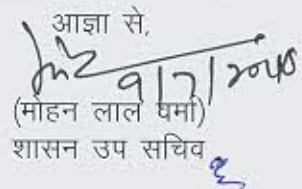 आज्ञा से,
9/7/2010
(मोहन लाल वर्मा)
शासन उप सचिव